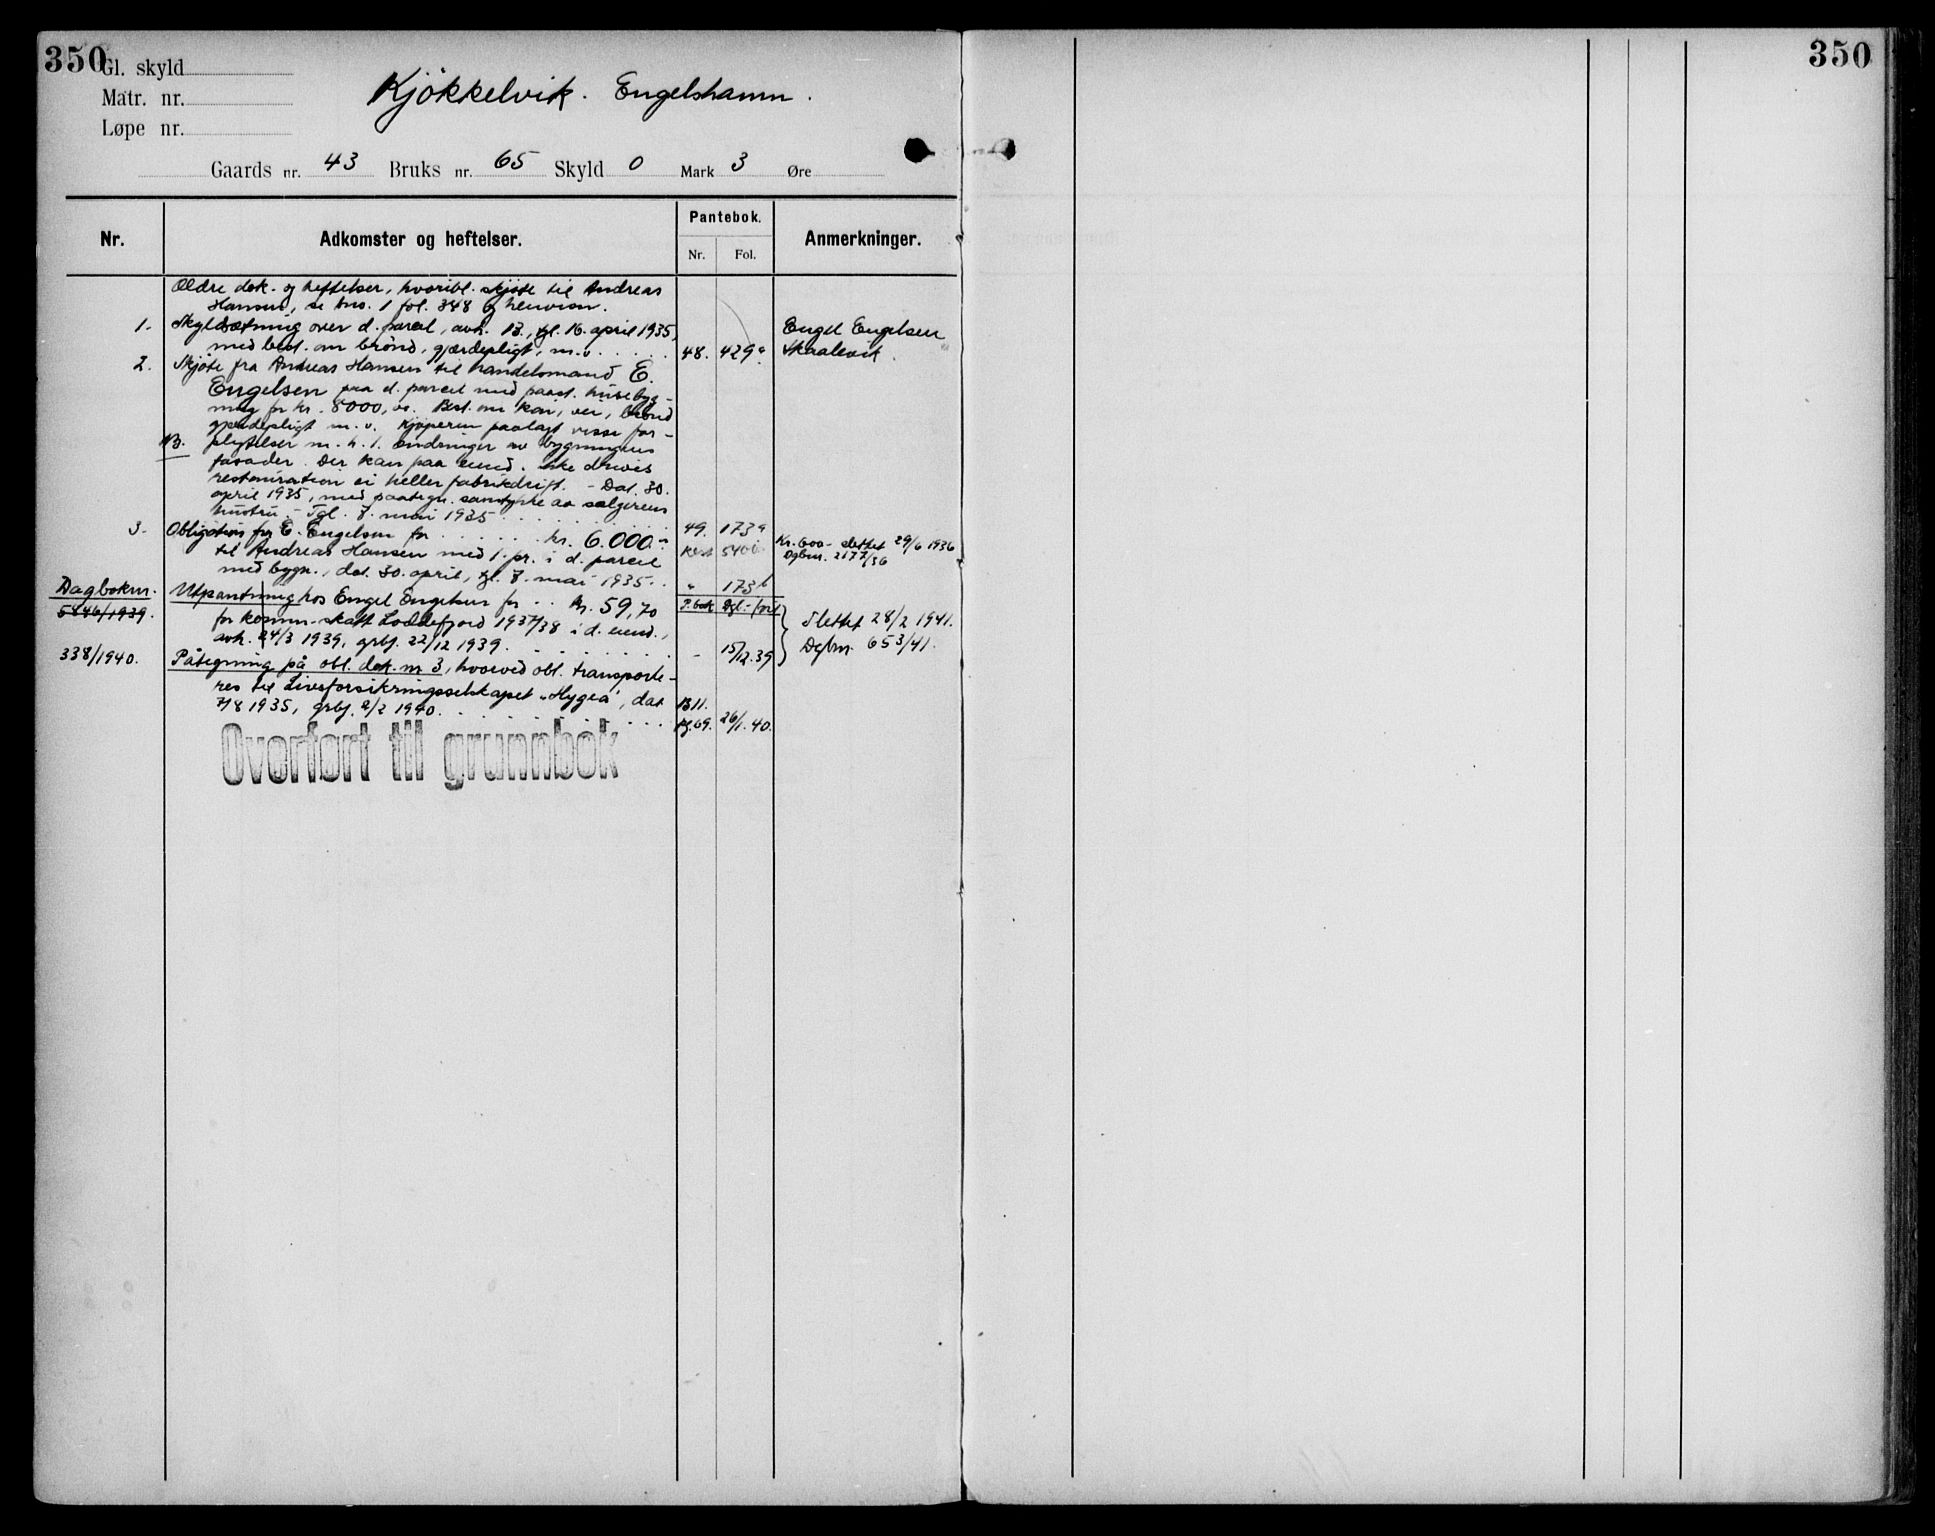 350
350
Gl. skyld
Matr. nr.
Løpe nr.
Kjökkelvik. Engelshamn.
Gaards nr. 43 Bruks nr. 65 Skyld 0 Mark 3 Øre
Nr.
Adkomster og heftelser.
Pantebok.
Nr. Fol.
Anmerkninger.
Ældre dok. og heftelser, hvoribl. skjøte til Andreas
Hansen, se bns. 1 fol. 348 og henvisn.
1. Skyldsætning over d. parcel, avh. 13., tgl. 16. april 1935,
med best. om brønd, gjærdepligt, m.v. . . . . . 48. 429a
Engel Engelsen
Skaalevik.
2. Skjøte fra Andreas Hansen til handelsmand E.
Engelsen paa d. parcel med paast. husebyg-
ning for kr. 8000,00. Best. om kai, vei, brønd
gjærdepligt m.v. Kjøperen paalagt visse for-
NB. pligtelser m.h.t. endringer av bygningens
fasader. Der kan paa eiend. ikke drives
restauration ei heller fabrikdrift. - Dat. 30.
april 1935, med paategn. samtykke av sælgerens
hustru. - Tgl. 7. mai 1935 . . . . . . . . . 49. 173a
3. Obligation fra E. Engelsen for . . . . . . kr. 6.000.-
til Andreas Hansen med 1. pr. i d. parcel Rest 5400
med bygn., dat. 30. april, tgl. 7. mai 1935. . " 173b
Kr. 600- slettet 29/6 1936
Dgbnr. 2177/36
Dagboknr.
5446/1939. Utpantning hos Engel Engelsen for . . kr. 59,70 P.bok Dgl.-ford
for komm.-skatt Loddefjord 1937/38 i d. eiend.,
avh. 24/3 1939, grbf. 22/12 1939. . . . . . . . - 15/12.39
Slettet 28/2 1941.
Dgbnr. 653/41.
338/1940. Påtegning på obl. dok. nr 3, hvorved obl. transporte-
res til Livsforsikringsselskapet "Hygea", dat B11.
7/8 1935, grbf. 2/2 1940. . . . . . . . . . . pg. 69. 26/1.40.
Overført til grunnbok